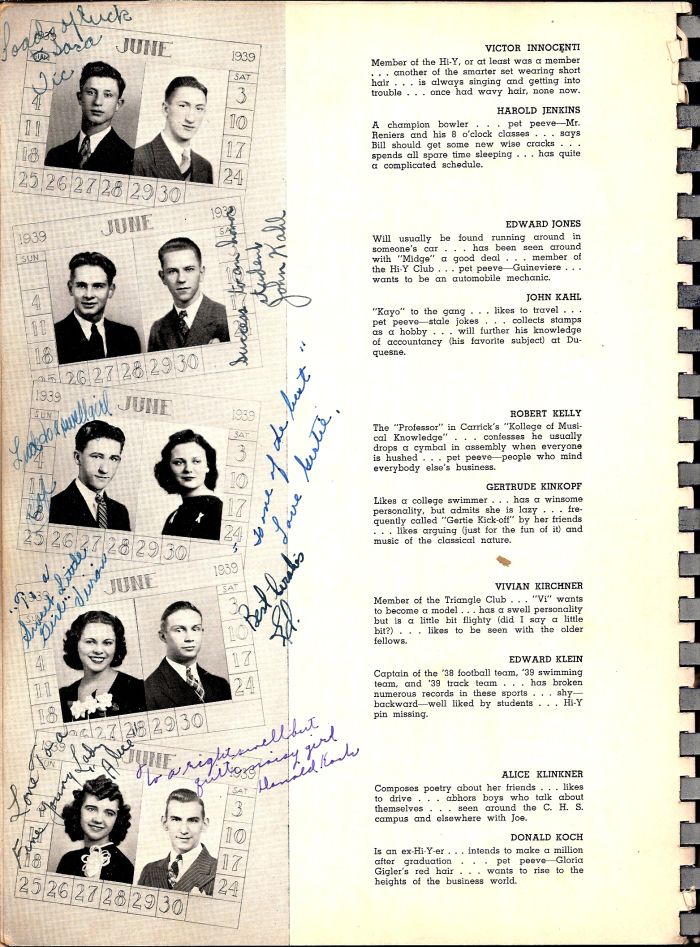 Loads of luck
to Dora
Vic
1939
JUNE
1939
SUN
SAT
4
3
11
10
18
17
25 26 27 28 29 30
24
VICTOR INNOCENTI
Member of the Hi-Y, or at least was a member
. . . another of the smarter set wearing short
hair . . . is always singing and getting into
trouble . . . once had wavy hair, none now.
HAROLD JENKINS
A champion bowler . . . pet peeve—Mr.
Reniers and his 8 o'clock classes . . . says
Bill should get some new wise cracks . . .
spends all spare time sleeping . . . has quite
a complicated schedule.
1939
JUNE
1939
SUN
SA
4
11
18
26 27 28 29 30
Success to an honor
student
John Kahl
EDWARD JONES
Will usually be found running around in
someone's car . . . has been seen around
with "Midge" a good deal . . . member of
the Hi-Y Club . . . pet peeve—Guineviere . . .
wants to be an automobile mechanic.
JOHN KAHL
"Kayo" to the gang . . . likes to travel . . .
pet peeve—stale jokes . . . collects stamps
as a hobby . . . will further his knowledge
of accountancy (his favorite subject) at Du-
quesne.
1939
JUNE
1939
SUN
SAT
3
10
17
25 26 27 28 29 30
24
Luck to a swell girl
Bob
"To one of de best"
Love Gertie.
ROBERT KELLY
The "Professor" in Carrick's "Kollege of Musi-
cal Knowledge" . . . confesses he usually
drops a cymbal in assembly when everyone
is hushed . . . pet peeve—people who mind
everybody else's business.
GERTRUDE KINKOPF
Likes a college swimmer . . . has a winsome
personality, but admits she is lazy . . . fre-
quently called "Gertie Kick-off" by her friends
. . . likes arguing (just for the fun of it) and
music of the classical nature.
JUNE
1939
SAT
4
3
11
10
18
17
25 26 27 28 29 30
24
"To a
Sweet Little
Girl" Vivian
Best Wishes
Ed.
VIVIAN KIRCHNER
Member of the Triangle Club . . . "Vi" wants
to become a model . . . has a swell personality
but is a little bit flighty (did I say a little
bit?) . . . likes to be seen with the older
fellows.
EDWARD KLEIN
Captain of the '38 football team, '39 swimming
team, and '39 track team . . . has broken
numerous records in these sports . . . shy—
backward—well liked by students . . . Hi-Y
pin missing.
JUNE
1939
3
10
18
17
25 26 27 28 29 30
24
Love To a
Fine Young Lady
Alice
To a right swell but
quite noisy girl
Donald Koch
ALICE KLINKNER
Composes poetry about her friends . . . likes
to drive . . . abhors boys who talk about
themselves . . . seen around the C. H. S.
campus and elsewhere with Joe.
DONALD KOCH
Is an ex-Hi-Y-er . . . intends to make a million
after graduation . . . pet peeve—Gloria
Gigler's red hair . . . wants to rise to the
heights of the business world.